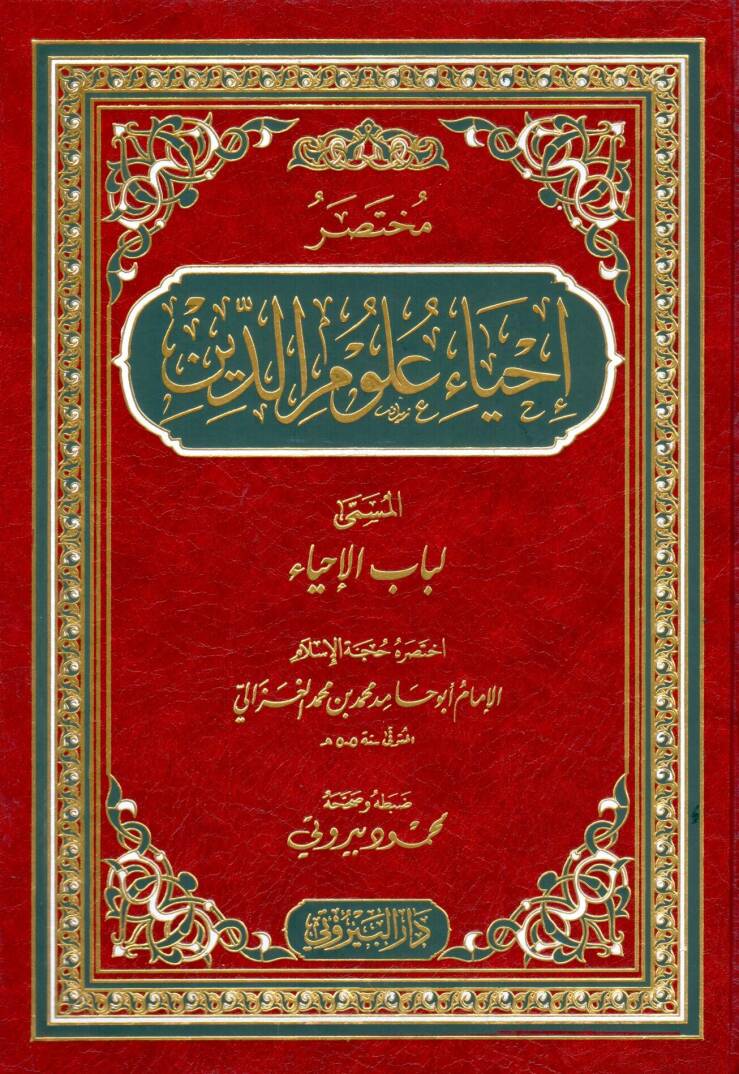 مُختَصَرُ
إِحْيَاءِ عُلُومِ الدِّيْنِ
المُسَمَّى
لباب الإحياء
اختصَرَهُ حُجَّةُ الإِسْلَامِ
الإمَامُ أبو حَامِد محمد بن محمد الغَزَاليّ
المتوفّى سنة ٥٠٥ هـ
ضَبَطَهُ وصَحَّحَهُ
محمُود بيروتي
دَارُ البَيْرُوتي